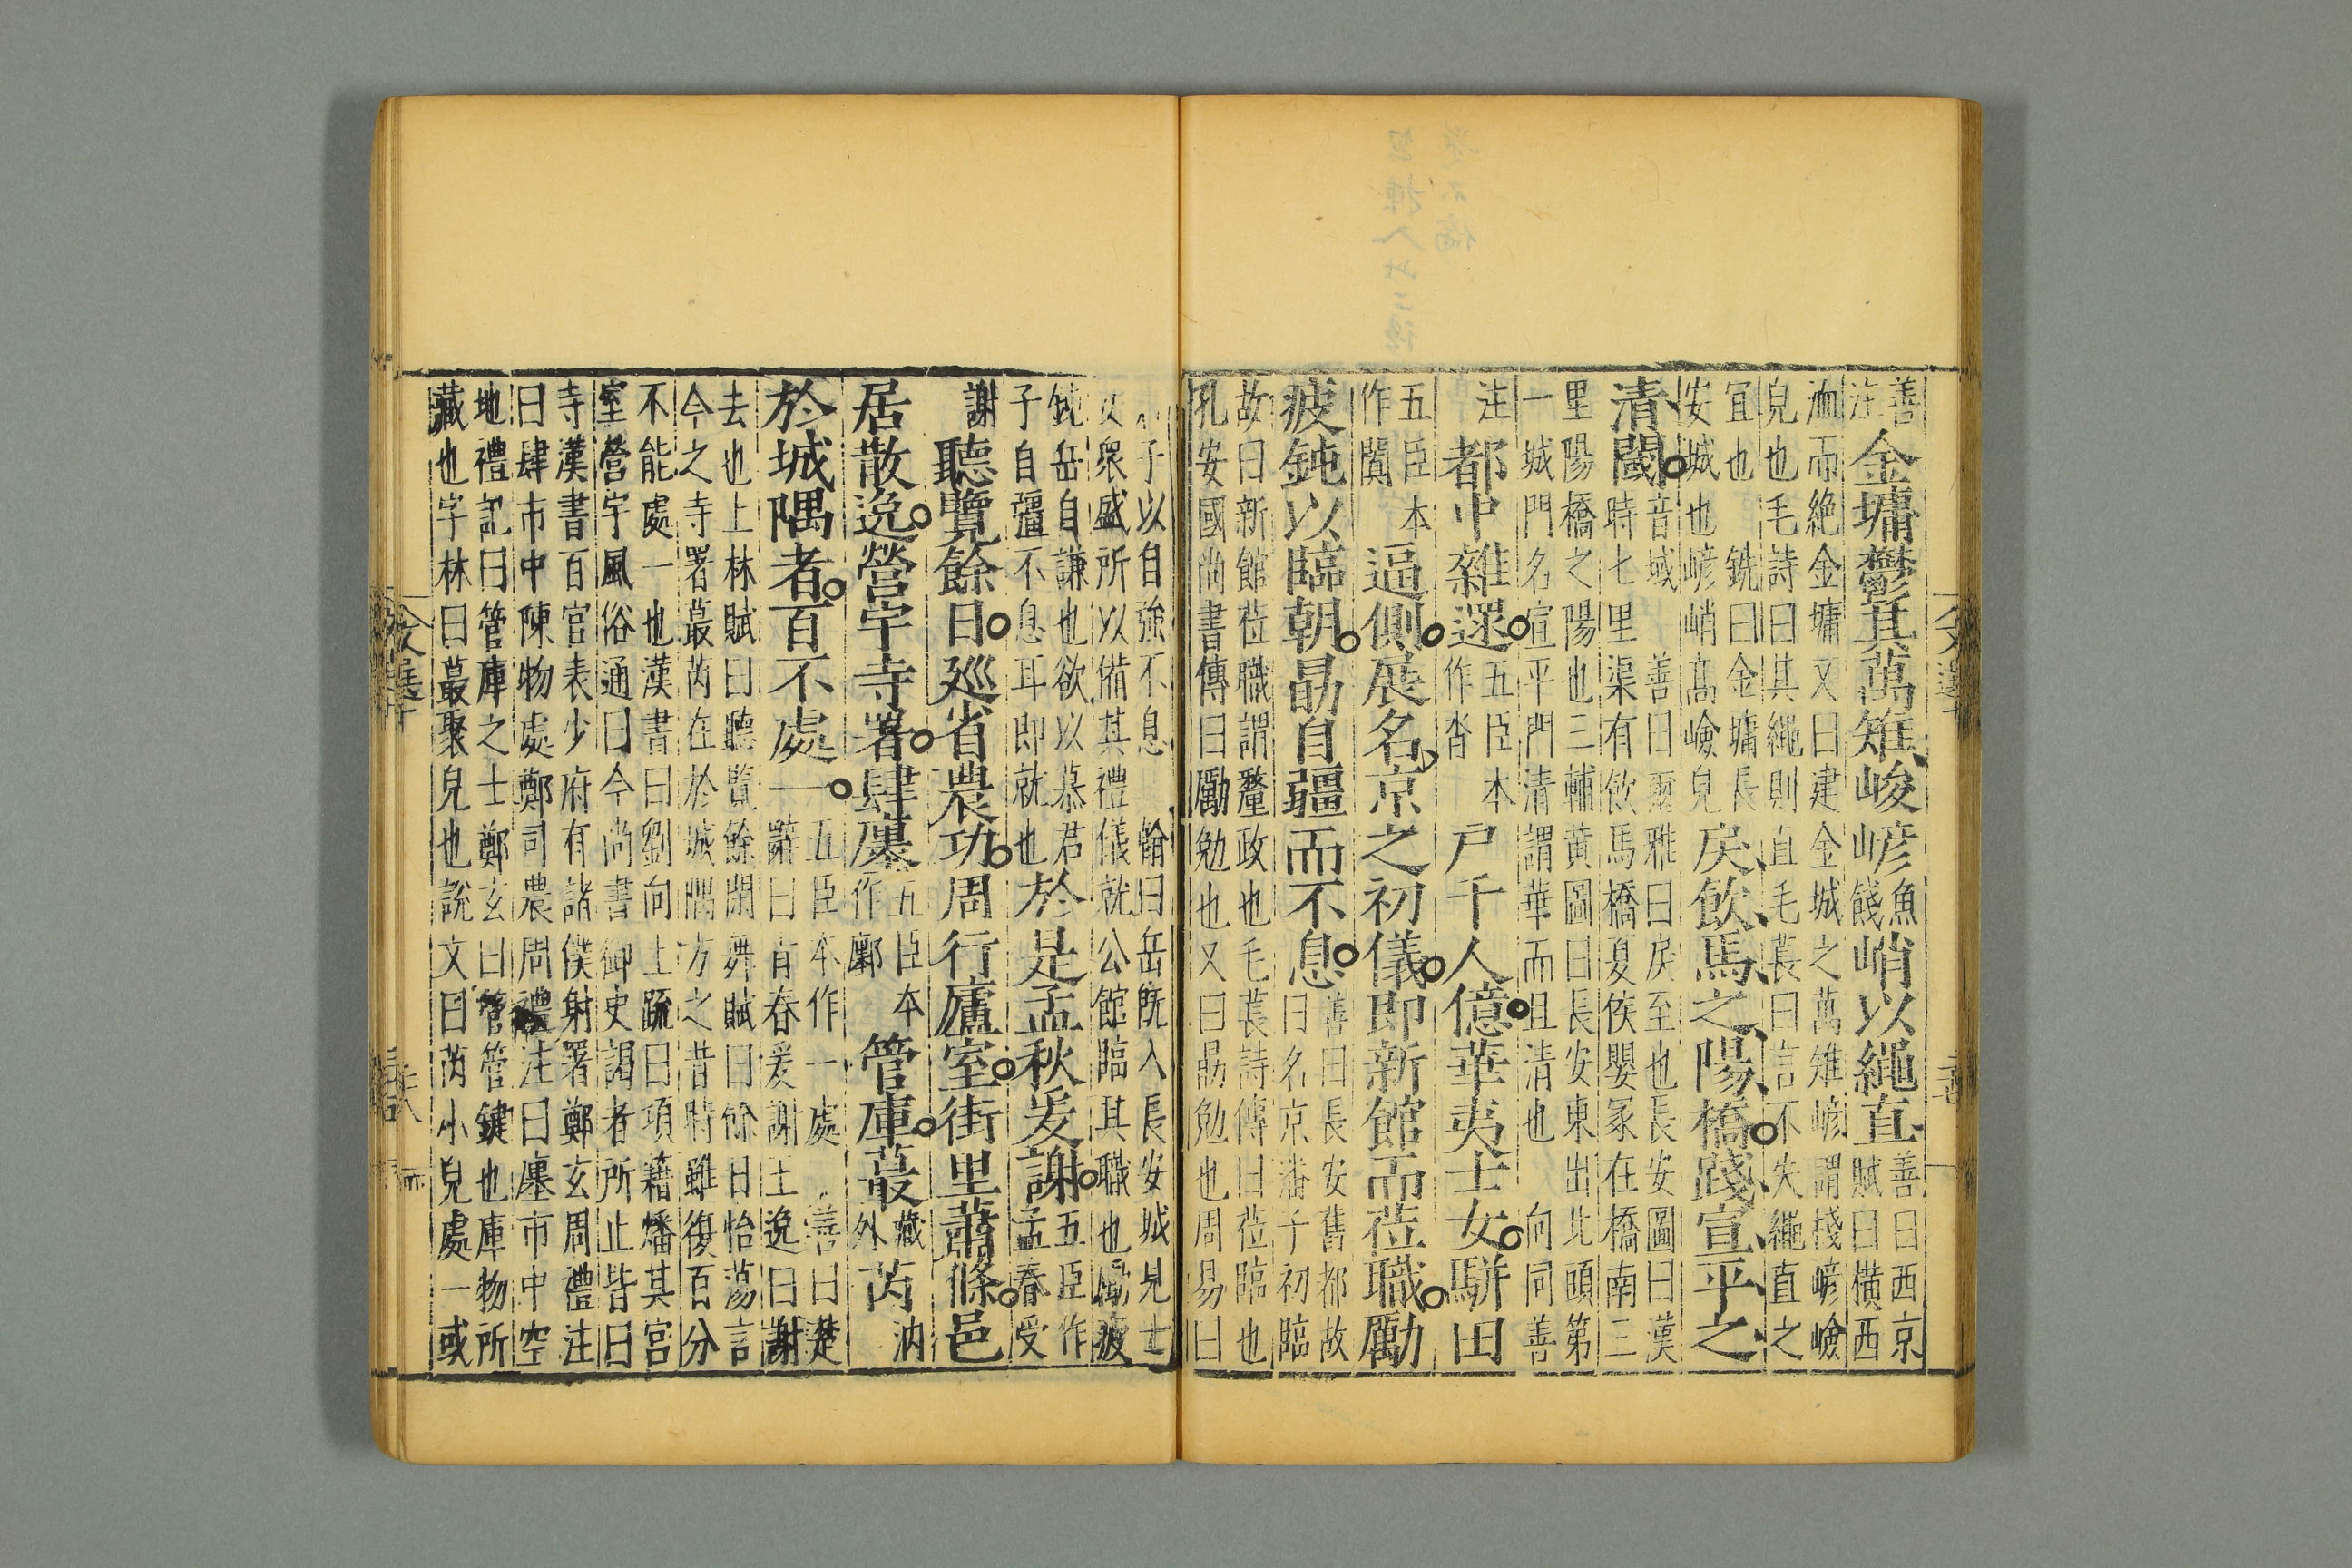 善注金墉鬱其萬雉峻嵃魚餞峭以繩直善曰西京賦曰橫西
洫而絶金墉又曰建金城之萬雉嵃謂棧嵃嶮
皃也毛詩曰其繩則直毛萇曰言不失繩直之
宜也銑曰金墉長安城也嵃峭高嶮皃戾飲馬之陽橋踐宣平之
清閾音域善曰爾雅曰戾至也長安圖曰漢時七里渠有飲馬橋夏侯嬰冢在橋南三
里陽橋之陽也三輔黄圖曰長安東出北頭第
一城門名宣平門清謂華而且清也向同善
注都中雜遝五臣本作沓戶千人億華夷士女駢田
五臣本作闐逼側展名京之初儀即新館而莅職勵
疲鈍以臨朝勗自疆而不息善曰長安舊都故曰名京潘千初臨
故曰新館莅職謂釐政也毛萇詩傳曰莅臨也
孔安國尚書傳曰勵勉也又曰勗勉也周易曰
子以自強不息翰曰岳旣入長安城見士
女衆盛所以備其禮儀就公館臨其職也勵疲
鈍岳自謙也欲以慕君子自疆不息耳即就也於是孟秋爰謝五臣作孟春受
謝聽覽餘日廵省農功周行廬室街里蕭條邑
居散逸營宇寺署肆廛五臣本作廓管庫蕞藏外芮汭
於城隅者百不處一五臣本作一處善曰楚辭曰青春爰謝王逸曰謝
去也上林賦曰聽覧餘閒舞賦曰餘日怡蕩言
今之寺署蕞芮在於城隅方之昔時雖復百分
不能處一也漢書曰劉向上疏曰項藉燔其宫
室營宇風俗通曰今尚書御史謁者所止皆曰
寺漢書百官表少府有諸僕射署鄭玄周禮注
曰肆市中陳物處鄭司農周禮注曰廛市中空
地禮記曰管庫之士鄭玄曰管管鍵也庫物所
藏也字林曰蕞聚皃也說文曰芮小皃處一或